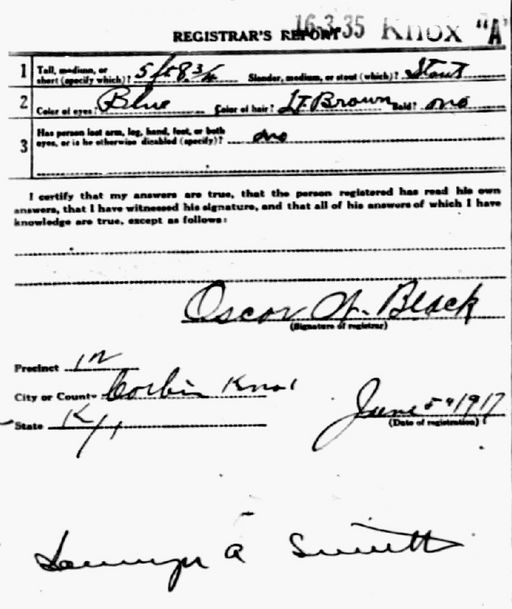 16-3-35 Knox "A"
REGISTRAR'S REPORT
1 Tall, medium, or short (specify which)? 5 ft 8 3/4 Slender, medium, or stout (which)? Stout
2 Color of eyes? Blue Color of hair? Lt Brown Bald? no
3 Has person lost arm, leg, hand, foot, or both eyes, or is he otherwise disabled (specify)? no
I certify that my answers are true, that the person registered has read his own
answers, that I have witnessed his signature, and that all of his answers of which I have
knowledge are true, except as follows:
Oscar W. Black
(Signature of registrar)
Precinct
City or County Corbin Knox
State Ky
June 5" 1917
(Date of registration)
A Smith